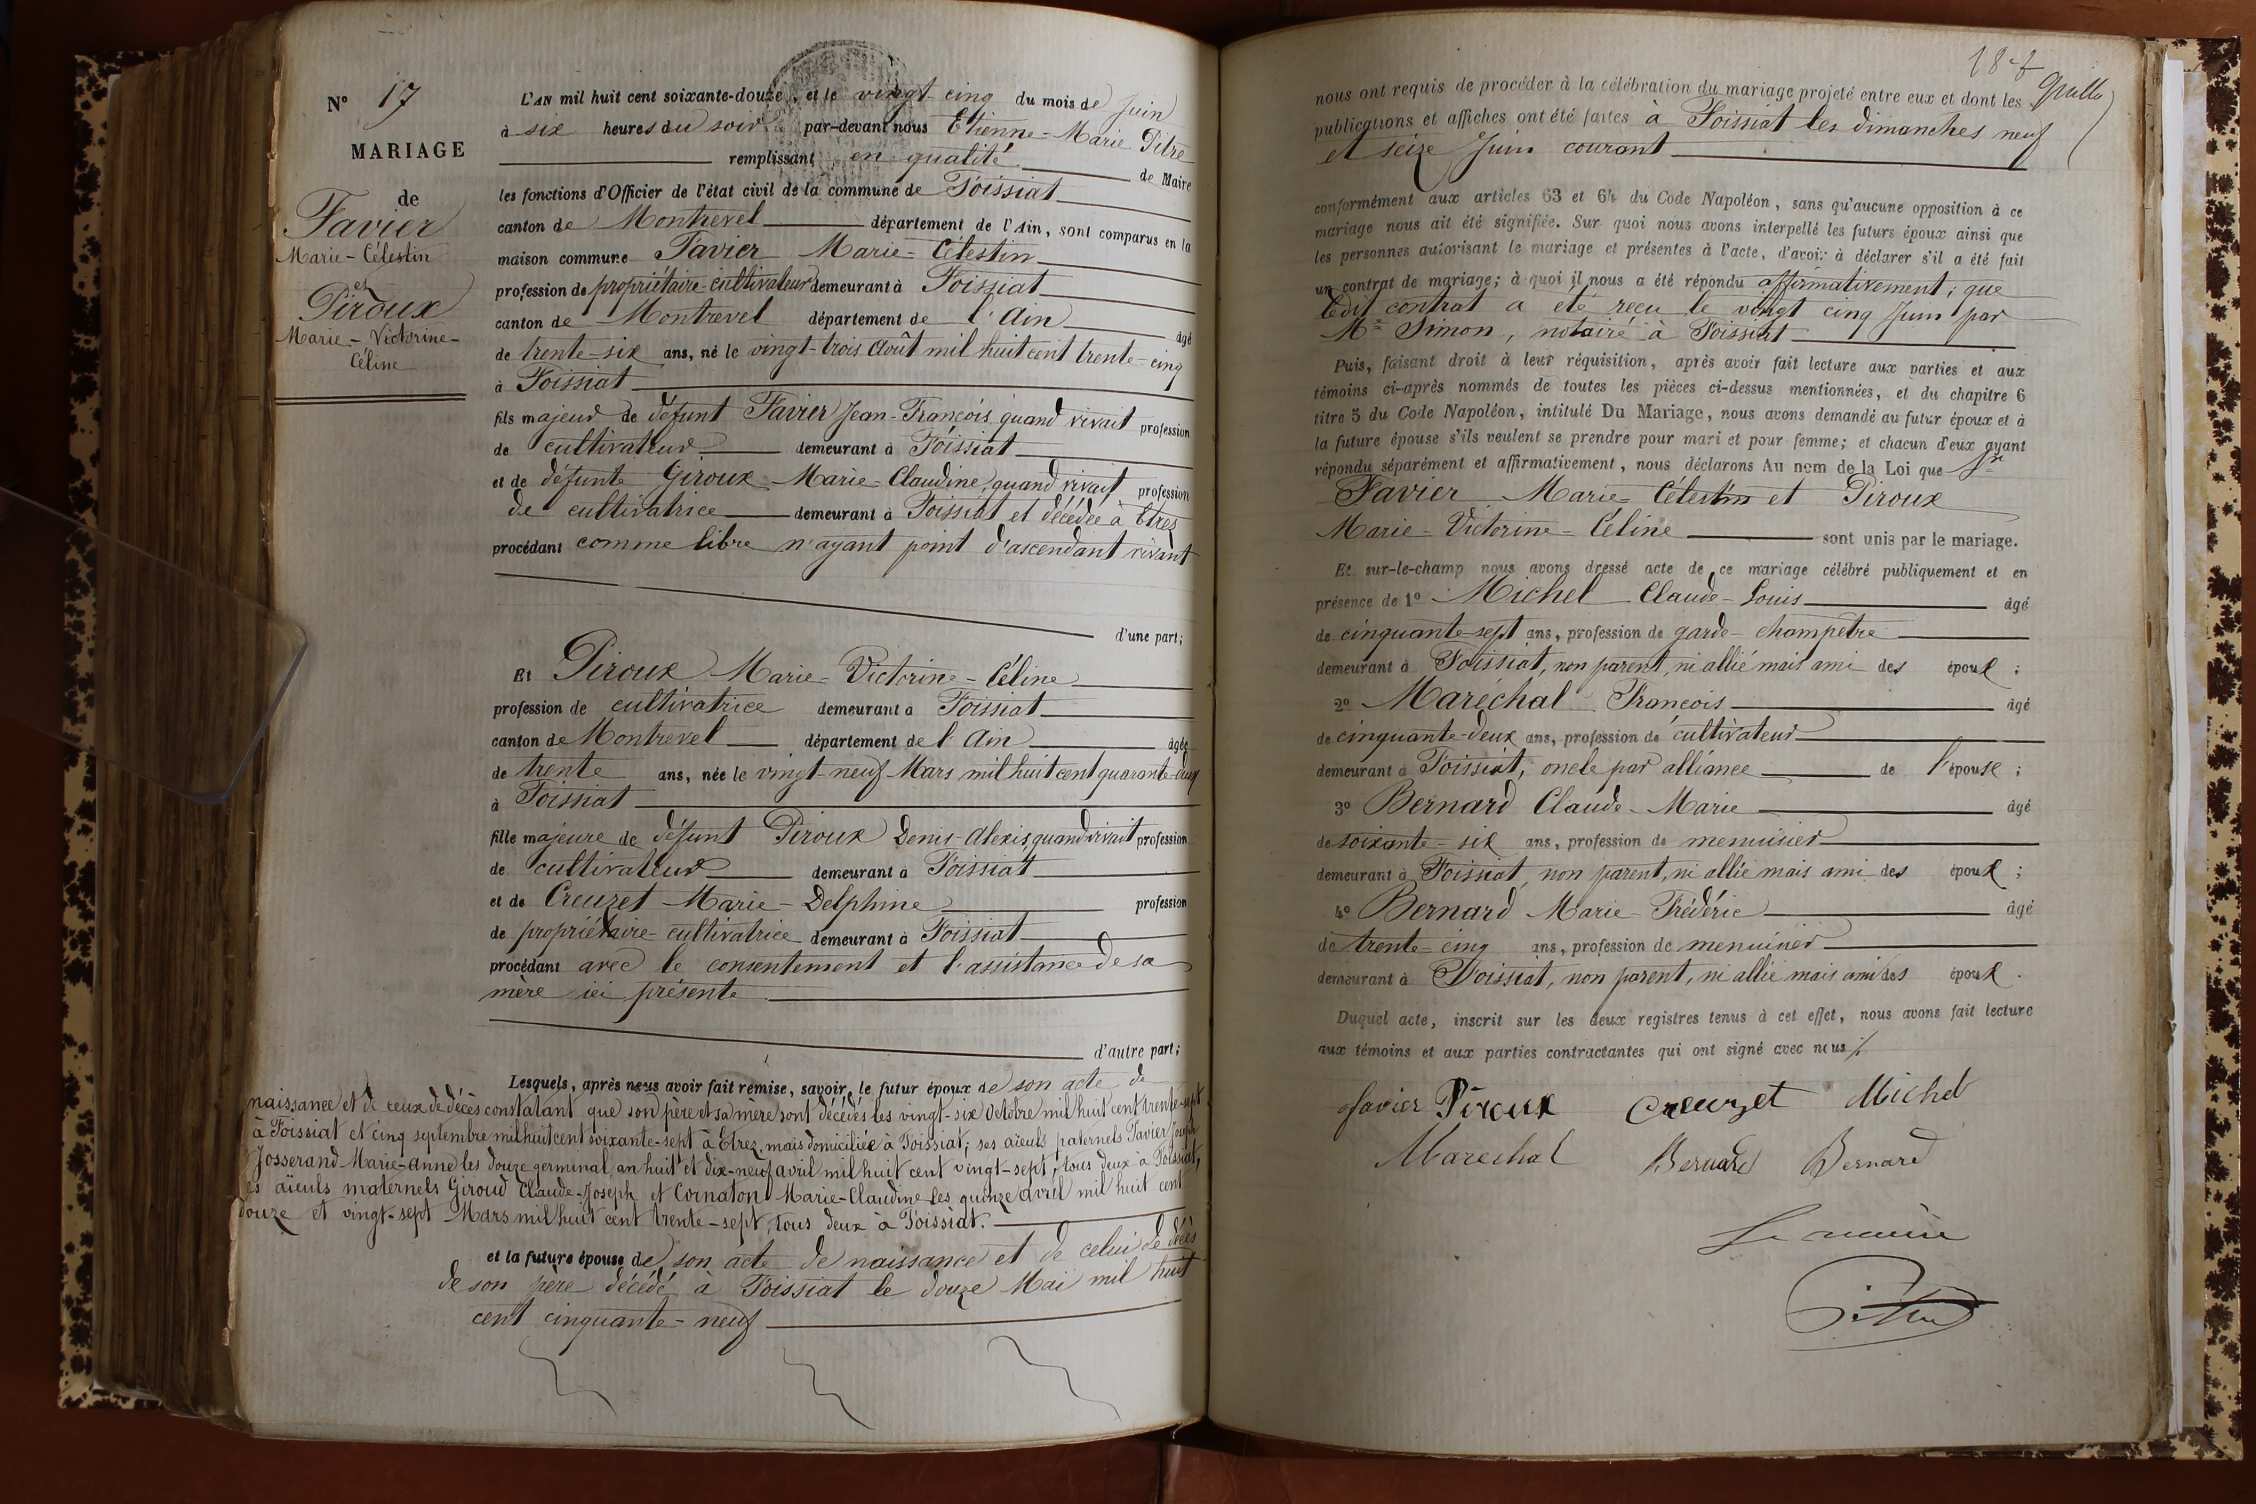 N° 17
MARIAGE
de
Favier
Marie-Célestin
et
Piroux
Marie-Victorine-
Céline
L'AN mil huit cent soixante-douze, et le vingt-cinq du mois de Juin
à six heures du soir par-devant nous Etienne-Marie Pitre
remplissant en qualité de Maire
les fonctions d'Officier de l'état civil de la commune de Foissiat
canton de Montrevel département de l'Ain, sont comparus en la
maison commune Favier Marie-Célestin
profession de propriétaire-cultivateur demeurant à Foissiat
canton de Montrevel département de l'Ain âgé
de trente-six ans, né le vingt-trois Août mil huit cent trente-cinq
à Foissiat
fils majeur de défunt Favier Jean-François quand vivait profession
de cultivateur demeurant à Foissiat
et de défunte Giroux Marie-Claudine, quand vivait, profession
de cultivatrice demeurant à Foissiat et décédée à Etrez
procédant comme libre n'ayant point d'ascendant vivant
d'une part;
Et Piroux Marie-Victorine-Céline
profession de cultivatrice demeurant à Foissiat
canton de Montrevel département de l'Ain âgée
de trente ans, née le vingt-neuf Mars mil huit cent quarante-deux
à Foissiat
fille majeure de défunt Piroux Denis-Alexis quand vivait profession
de cultivateur demeurant à Foissiat
et de Creuzet Marie-Delphine profession
de propriétaire-cultivatrice demeurant à Foissiat
procédant avec le consentement et l'assistance de sa
mère ici présente
d'autre part;
Lesquels, après nous avoir fait remise, savoir, le futur époux de son acte de
naissance et de ceux de décès constatant que son père et sa mère sont décédés les vingt-six Octobre mil huit cent trente-sept
à Foissiat et cinq septembre mil huit cent soixante-sept à Etrez, mais domiciliée à Foissiat; ses aïeuls paternels Favier Joseph
Josserand Marie-anne les douze germinal an huit et dix-neuf avril mil huit cent vingt-sept, tous deux à Foissiat,
ses aïeuls maternels Giroud Claude-Joseph et Cornaton Marie-Claudine les quinze avril mil huit cent
douze et vingt-sept Mars mil huit cent trente-sept, tous deux à Foissiat.
et la future épouse de son acte de naissance et de celui de décès
de son père décédé à Foissiat le douze Mai mil huit
cent cinquante-neuf
nous ont requis de procéder à la célébration du mariage projeté entre eux et dont les
publications et affiches ont été faites à Foissiat les dimanches neuf
et seize Juin courant
conformément aux articles 63 et 64 du Code Napoléon, sans qu'aucune opposition à ce
mariage nous ait été signifiée. Sur quoi nous avons interpellé les futurs époux ainsi que
les personnes autorisant le mariage et présentes à l'acte, d'avoir à déclarer s'il a été fait
un contrat de mariage; à quoi il nous a été répondu affirmativement; que
ledit contrat a été reçu le vingt cinq Juin par
Me Simon, notaire à Foissiat
Puis, faisant droit à leur réquisition, après avoir fait lecture aux parties et aux
témoins ci-après nommés de toutes les pièces ci-dessus mentionnées, et du chapitre 6
titre 5 du Code Napoléon, intitulé Du Mariage, nous avons demandé au futur époux et à
la future épouse s'ils veulent se prendre pour mari et pour femme; et chacun d'eux ayant
répondu séparément et affirmativement, nous déclarons Au nom de la Loi que Sr
Favier Marie-Célestin et Piroux
Marie-Victorine-Céline sont unis par le mariage.
Et sur-le-champ nous avons dressé acte de ce mariage célébré publiquement et en
présence de 1° Michel Claude-Louis âgé
de cinquante-sept ans, profession de garde-champêtre
demeurant à Foissiat, non parent, ni allié mais ami des époux;
2° Maréchal François âgé
de cinquante-deux ans, profession de cultivateur
demeurant à Foissiat, oncle par alliance de l'épouse;
3° Bernard Claude-Marie âgé
de soixante-six ans, profession de menuisier
demeurant à Foissiat, non parent, ni allié mais ami des époux;
4° Bernard Marie-Frédéric âgé
de trente-cinq ans, profession de menuisier
demeurant à Foissiat, non parent, ni allié mais ami des époux.
Duquel acte, inscrit sur les deux registres tenus à cet effet, nous avons fait lecture
aux témoins et aux parties contractantes qui ont signé avec nous
favier Piroux Creuzet Michel
Marechal Bernard Bernard
Le maire
Pitre